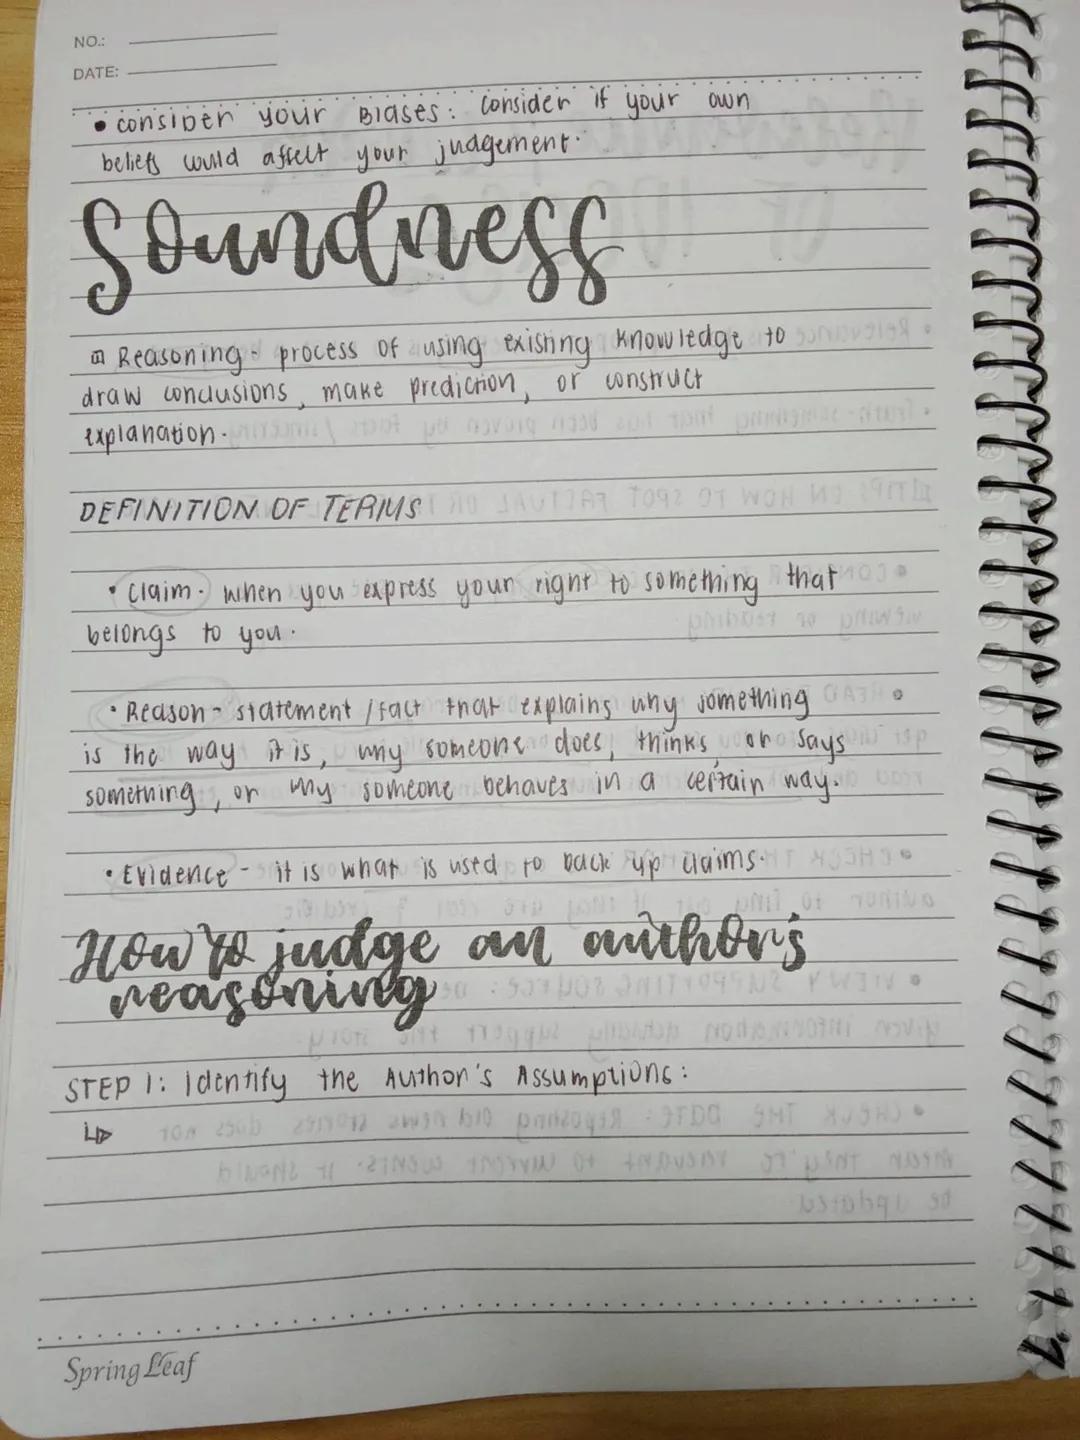 NO.:
DATE:
• CONSIDER your BIASES: Consider if your own
beliefs would affect your judgement.
Soundness
Reasoning - process of using existing knowledge to
draw conclusions, make prediction, or construct
explanation.
DEFINITION OF TERMS
• Claim. when you express your right to something that
belongs to you.
• Reason - statement / fact that explains why something
is the way it is, why someone does, thinks or says
something, or why someone behaves in a certain way.
• Evidence - it is what is used to back up claims.
How to judge an author's
reasoning
STEP 1: Identify the Author's Assumptions:
Spring Leaf